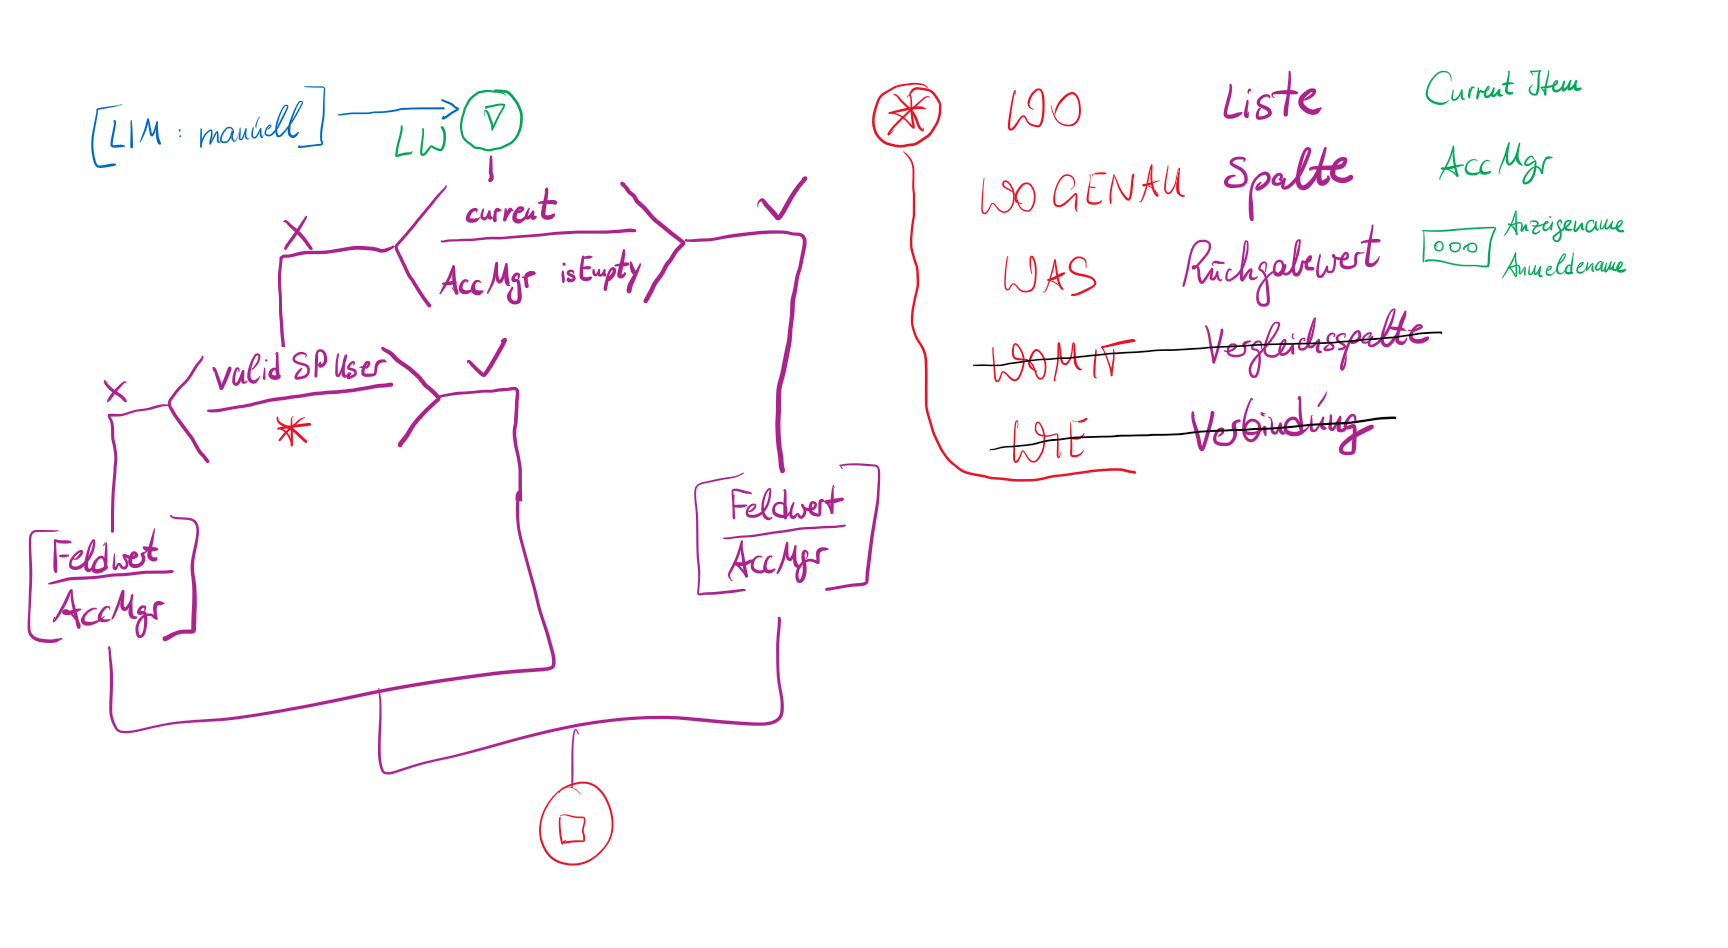 [LIM : manuell]
LW
current
AccMgr isEmpty
valid SP User
*
Feldwert
AccMgr
Feldwert
AccMgr
* WO Liste Current Item
WO GENAU Spalte AccMgr
WAS Rückgabewert Anzeigename
Anmeldename
WOMIT Vergleichsspalte
WIE Verbindung